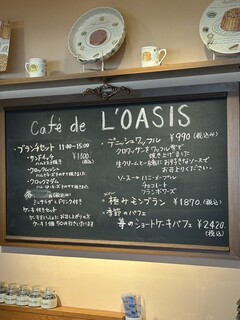 Café de L'OASIS
・ブランチセット 11:00~15:00
・サンドイッチ ¥1500
ハムときゅうり
・クロックムッシュ (税込)
・クロックマダム
ミニサラダ・ドリンク付き
ケーキ付きセット
・デニッシュワッフル ¥990 (税込み)
クロワッサンをワッフル型で
焼き上げました
生クリームと一緒にお好きなソースで
お召し上がりください。
ソース→ハニーメープル
チョコレート
フランボワーズ
・極みモンブラン ¥1870 (税込)
・季節のパフェ
苺のショートケーキパフェ ¥2420
(税込)